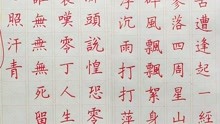 遭逢起一經
落四周星
風飄絮身
雨打萍
頭說惶恐零
嘆零丁人生
誰無死留
照汗青